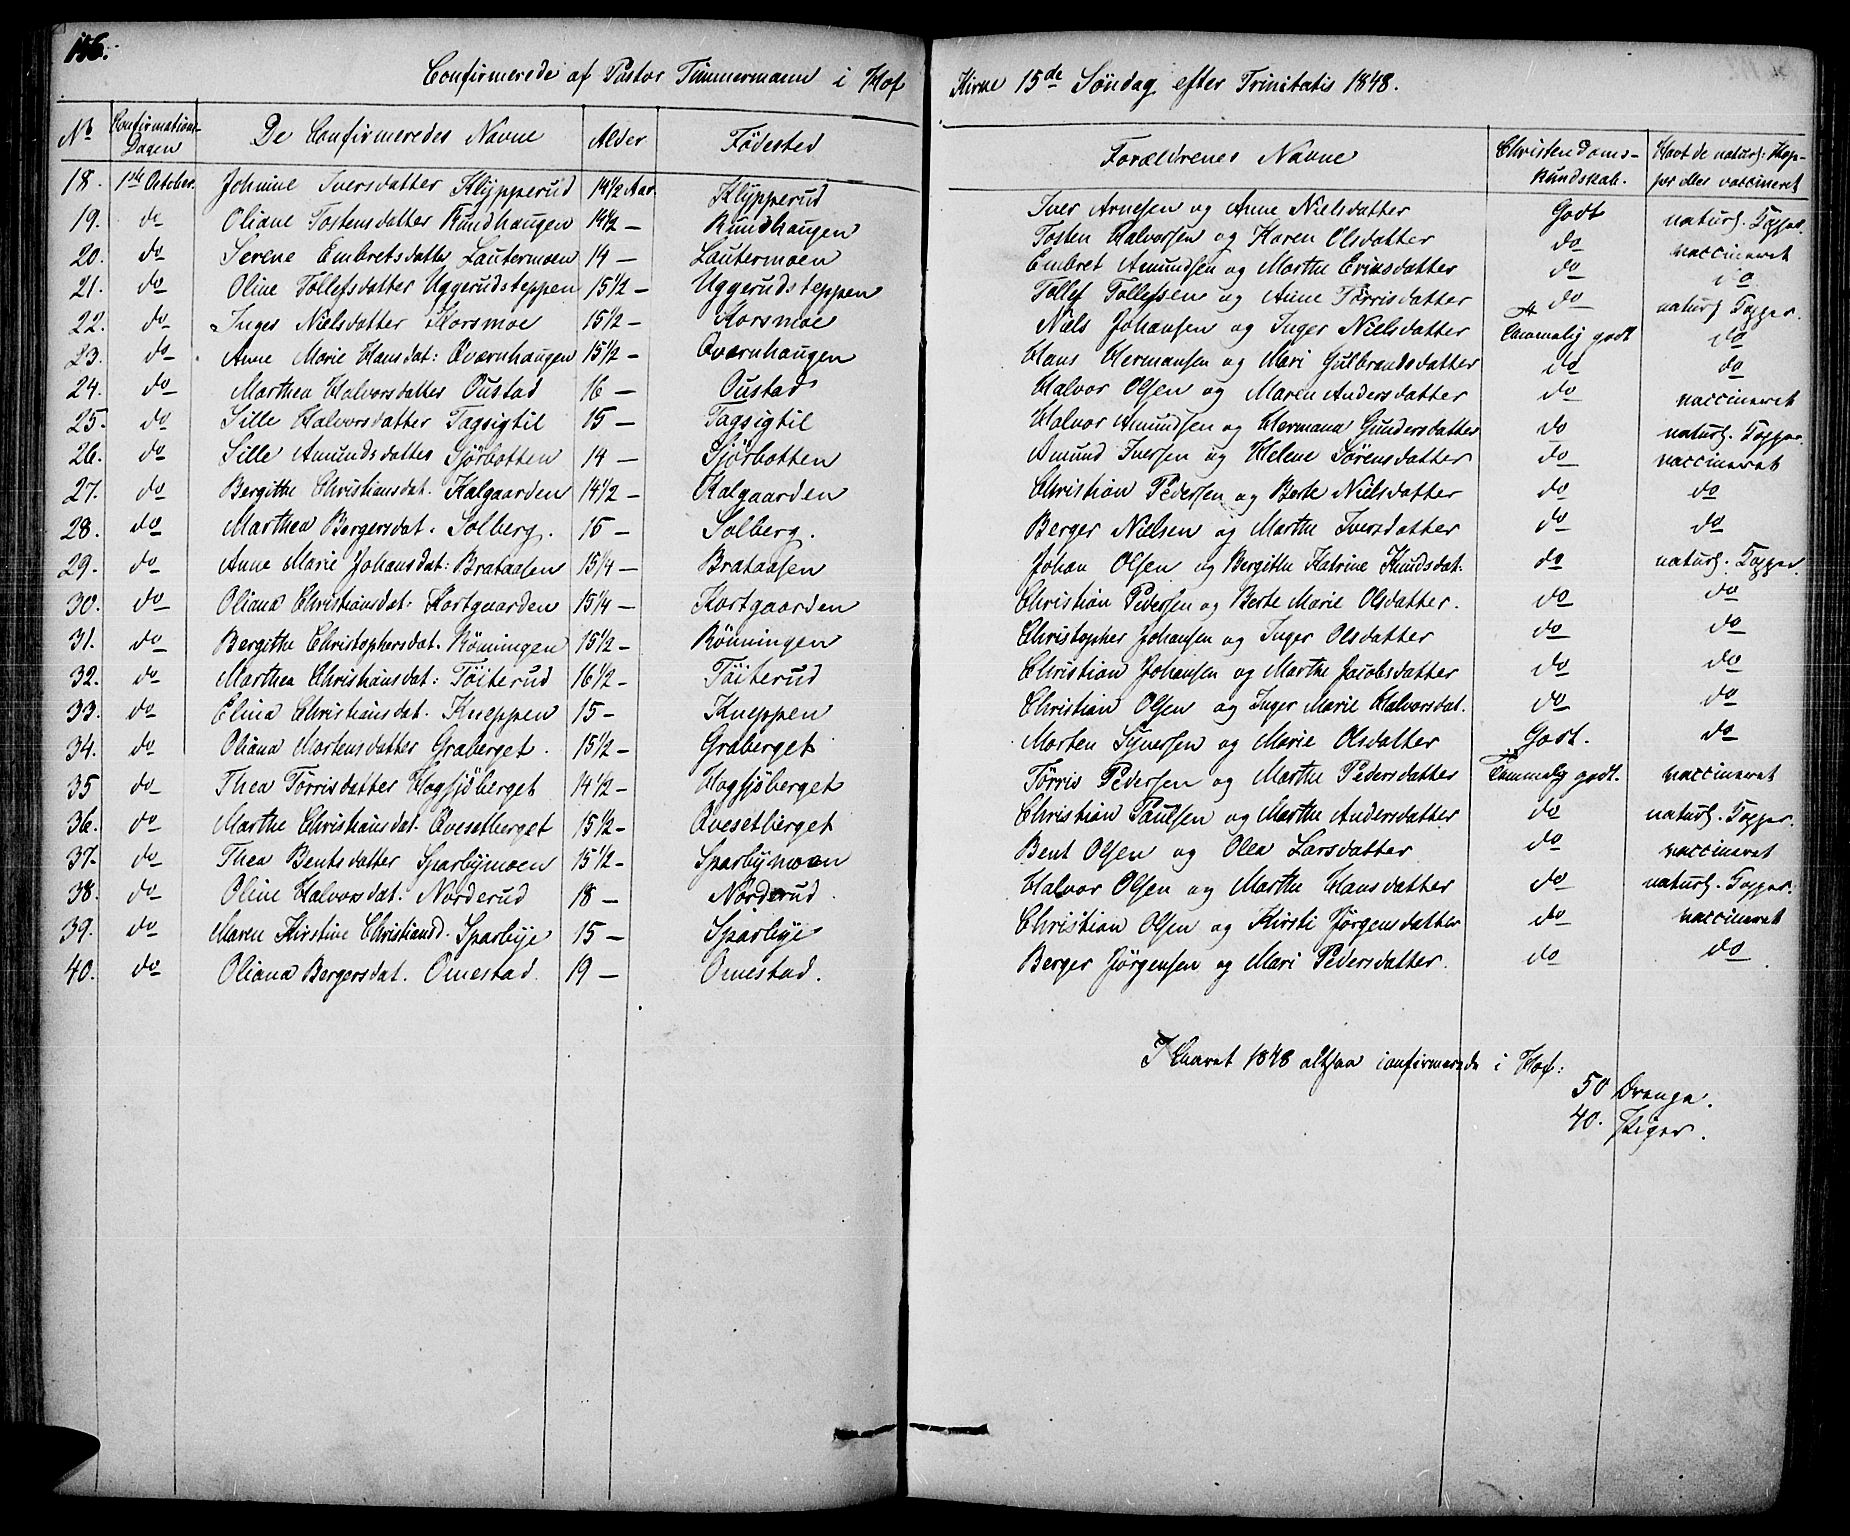 186.
Confirmerede af Pastor Timmermann i Hof Kirke 15de Söndag efter Trinitatis 1848.
No Confirmations-Dagen De Confirmeredes Navne Alder Födested Forældrenes Navne Christendoms-kundskab. Havt de naturl. Kopper eller vaccineret
18. 1ste October. Johnine Iversdatter Klypperud 14 1/2 Aar Klypperud Iver Arnesen og Anne Nielsdatter Godt naturl. Kopper.
19. do Oliane Tostensdatter Rundhaugen 14 1/2 — Rundhaugen Tosten Halvorsen og Karen Olsdatter do vaccineret
20. do Serene Embretsdatter Lautermoen 14 — Lautermoen Embret Amundsen og Marthe Eriksdatter do do
21. do Oline Tollefsdatter Uggerudsteppen 15 1/2 — Uggerudsteppen Tollef Tollefsen og Anne Törrisdatter do naturl. Kopper.
22. do Inger Nielsdatter Korsmoe 15 1/2 — Korsmoe Niels Johansen og Inger Nielsdatter Temmelig godt do
23. do Anne Marie Hansdat: Qværnhaugen 15 1/2 — Qværnhaugen Hans Hermansen og Mari Gulbrandsdatter do do
24. do Marthea Halvorsdatter Oustad 16 — Oustad Halvor Olsen og Maren Andersdatter do vaccineret
25. do Sille Halvorsdatter Tagsigtil 15 — Tagsigtil Halvor Amundsen og Hermana Gundersdatter do naturl. Kopper.
26. do Sille Amundsdatter Sjörbotten 14 — Sjörbotten Amund Iversen og Helene Sörensdatter do vaccineret
27. do Bergithe Christiansdat. Kalgaarden 14 1/2 — Kalgaarden Christian Pedersen og Berte Nielsdatter do do
28. do Marthea Bergersdat. Solberg. 15 — Solberg. Berger Nielsen og Marthe Iversdatter do do
29. do Anne Marie Johansdat: Brataasen 15 1/4 — Brataasen Johan Olsen og Bergithe Katrine Knudsdat. do naturl. Kopper.
30. do Oliana Christiansdat. Kortgaarden 15 1/4 — Kortgaarden Christian Pedersen og Berte Marie Olsdatter. do do
31. do Bergithe Christophersdat. Rönningen 15 1/2 — Rönningen Christopher Johansen og Inger Olsdatter do do
32. do Marthea Christiansdat: Töiterud 16 1/2 — Töiterud Christian Johansen og Marthe Jacobsdatter do do
33. do Elina Christiansdat. Kneppen 15 — Kneppen Christian Olsen og Inger Marie Halvorsdat. do do
34. do Oliana Mortensdatter Graberget. 15 1/2 — Graberget Morten Syversen og Marie Olsdatter Godt. do
35 do Thea Törrisdatter Hogsjöberget 14 1/2 — Hogsjöberget Törris Pedersen og Marthe Pedersdatter Temmelig godt. vaccineret
36. do Marthe Christiansdat. Qvesetberget 15 1/2 — Qvesetberget Christian Paulsen og Marthe Andersdatter do naturl. Kopper.
37. do Thea Bentsdatter Sparbymoen 15 1/2 — Sparbymoen Bent Olsen og Olea Larsdatter do vaccineret
38. do Oline Halvorsdat. Norderud 18 — Norderud. Halvor Olsen og Marthe Hansdatter do naturl. Kopper.
39. do Maren Kirstine Christiansd. Sparbye 15 — Sparbye Christian Olsen og Kirsti Jörgensdatter do vaccineret
40. do Oliana Bergersdat. Omestad. 19 — Omestad. Berger Jörgensen og Mari Pedersdatter. do do
I Aaret 1848 altsaa confirmerede i Hof:
50 Drenge.
40. Piger.